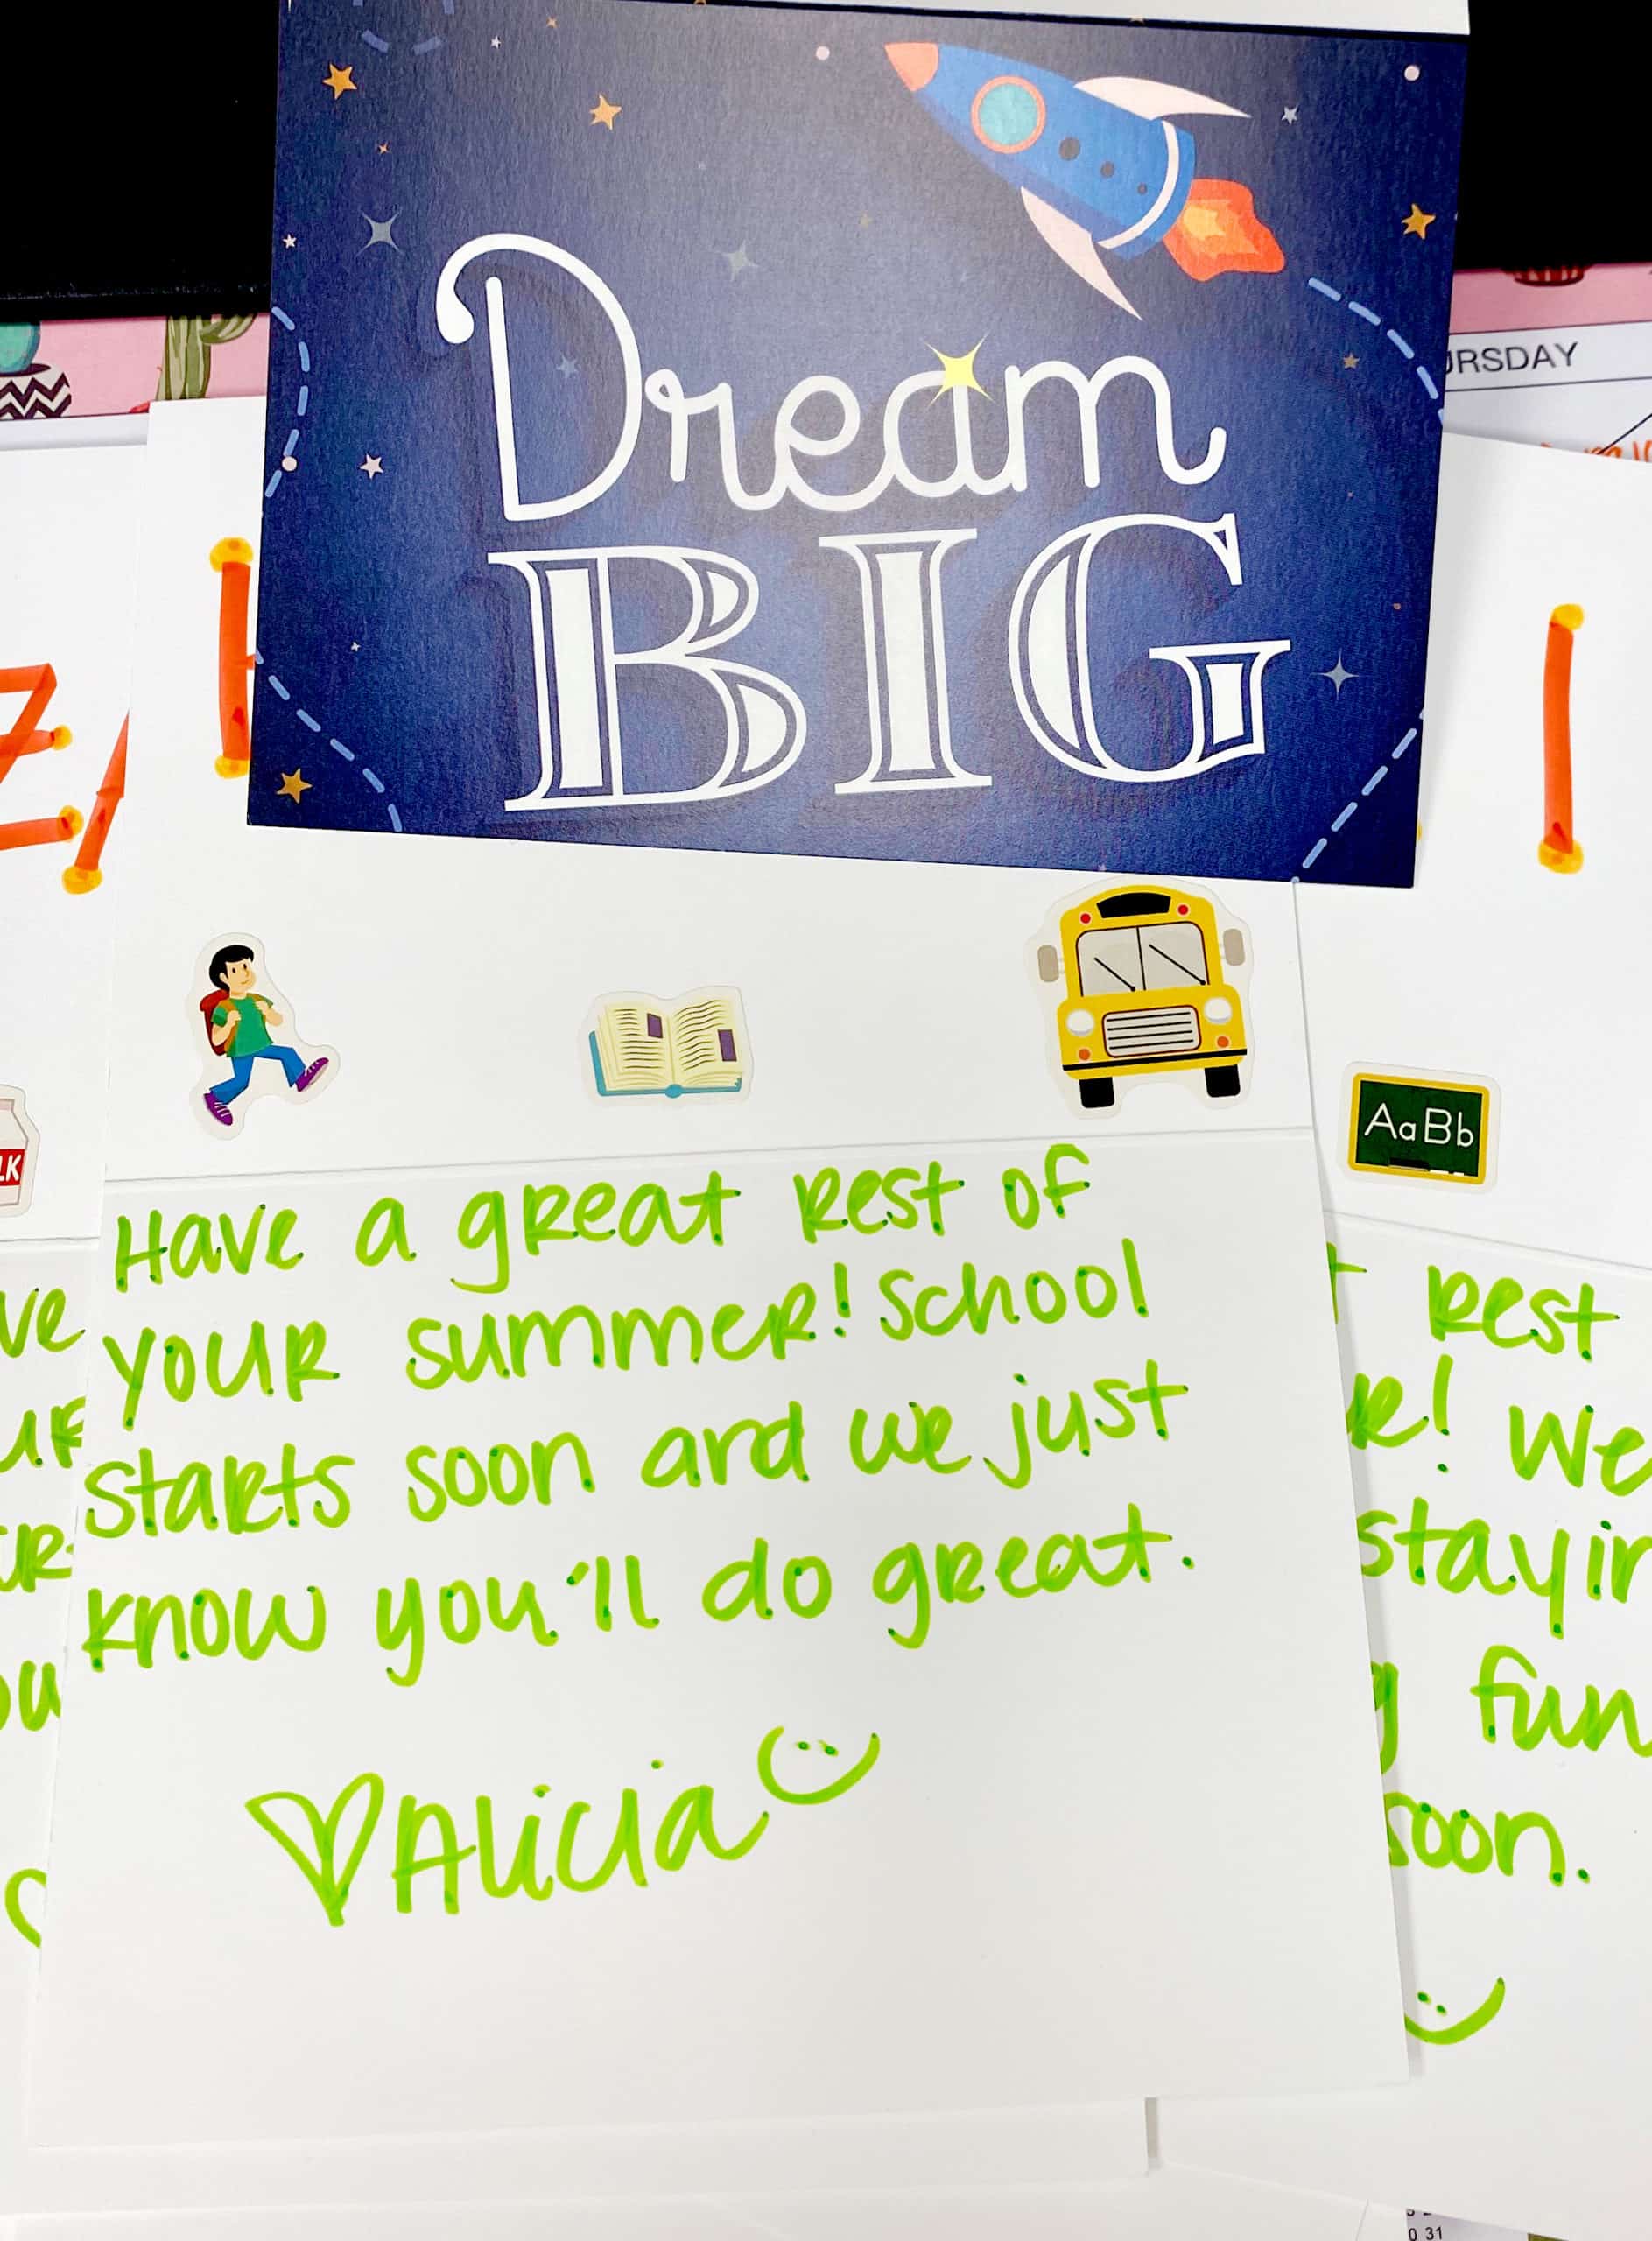 URSDAY
Dream
BIG
Z
LK
AaBb
Have a great rest of
your summer! School
starts soon and we just
know you'll do great.
♡Alicia
ve
ur
ou
rest
r! We
stayin
g fun
soon.
0 31